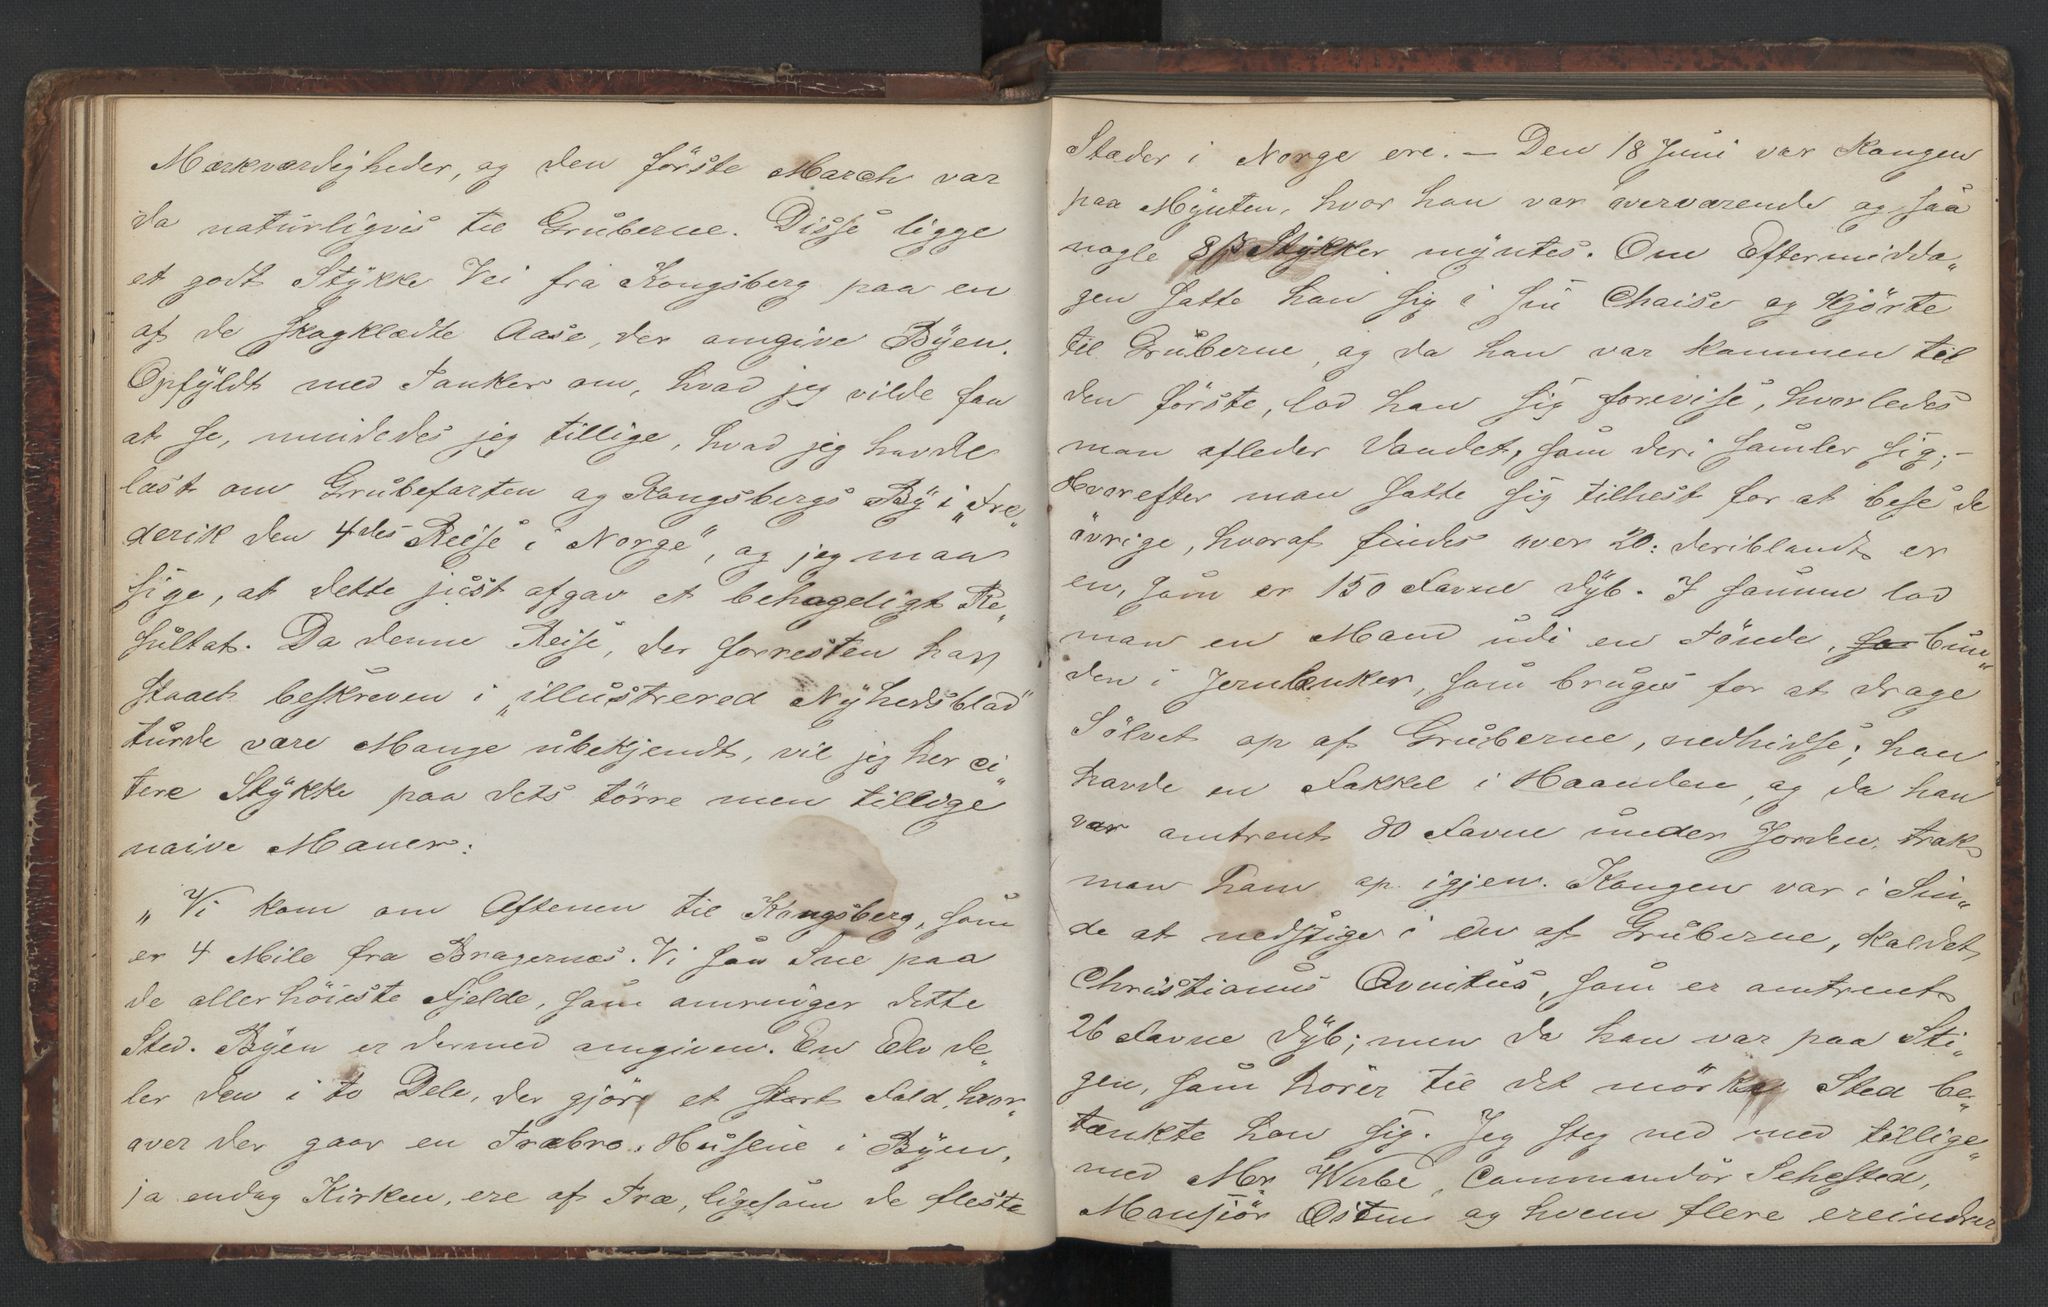 Mærkværdigheder, og den förste March var
da naturligvis til Gruberne. Disse ligge
et godt Stykke Vei fra Kongsberg paa en
af de skogklædte Aase, der omgive Byen.
Opfyldt med Tanker om, hvad jeg vilde faa
at se, mindedes jeg tillige, hvad jeg havde
læst om Grubefarten og Kongsbergs By i „Fre„
derik den 4des Reise i Norge", og jeg maa
sige, at dette just afgav et behageligt Re„
sultat. Da denne Reise, der forresten har
staaet beskreven i „illustrered Nyhedsblad"
turde være Mange ubekjendt, vil jeg her ci„
tere Stykke paa dets törre men tillige
naive Maner:
„Vi kom om Aftenen til Kongsberg, som
er 4 Mile fra Bragernæs. Vi saa Sne paa
de allerhöieste Fjelde, som omringer dette
Sted. Byen er dermed omgiven. En Elv de„
ler den i to Dele, der gjör et stort Fald, hvor„
over der gaar en Træbro. Husene i Byen,
ja endog Kirken, ere af Træ, ligesom de fleste
Stæder i Norge ere. — Den 18 Juni var Kongen
paa Mynten, hvor han var overværende og saa
nogle 8 ß Stykker myntes. Om Eftermidda„
gen satte han sig i sin Chaise og kjörte
til Gruberne, og da han var kommen til
den förste, lod han sig forevise, hvorledes
man afleder Vandet, som deri samler sig; —
Hvorefter man satte sig tilhest for at bese de
övrige, hvoraf findes over 20: deriblandt er
en, som er 150 Favne dyb. I samme lod
man en Mand udi en Tönde, so bun„
den i Jernlænker, som bruges for at drage
Sölvet op af Gruberne, nedhidse; han
havde en Fakkel i Haanden, og da han
var omtrent 80 Favne under Jorden, trak
man ham op igjen. Kongen var i Sin„
de at nedstige i en af Gruberne, kaldet
Christianus Qvintus, som er omtrent
26 Favne dyb; men da han var paa Sti„
gen, som hörer til det mörke Sted be„
tænkte han sig. Jeg steg ned med tillige„
med Mr. Wirbe, Commandör Sehested,
Mansjör Osten og hvem flere erindrer